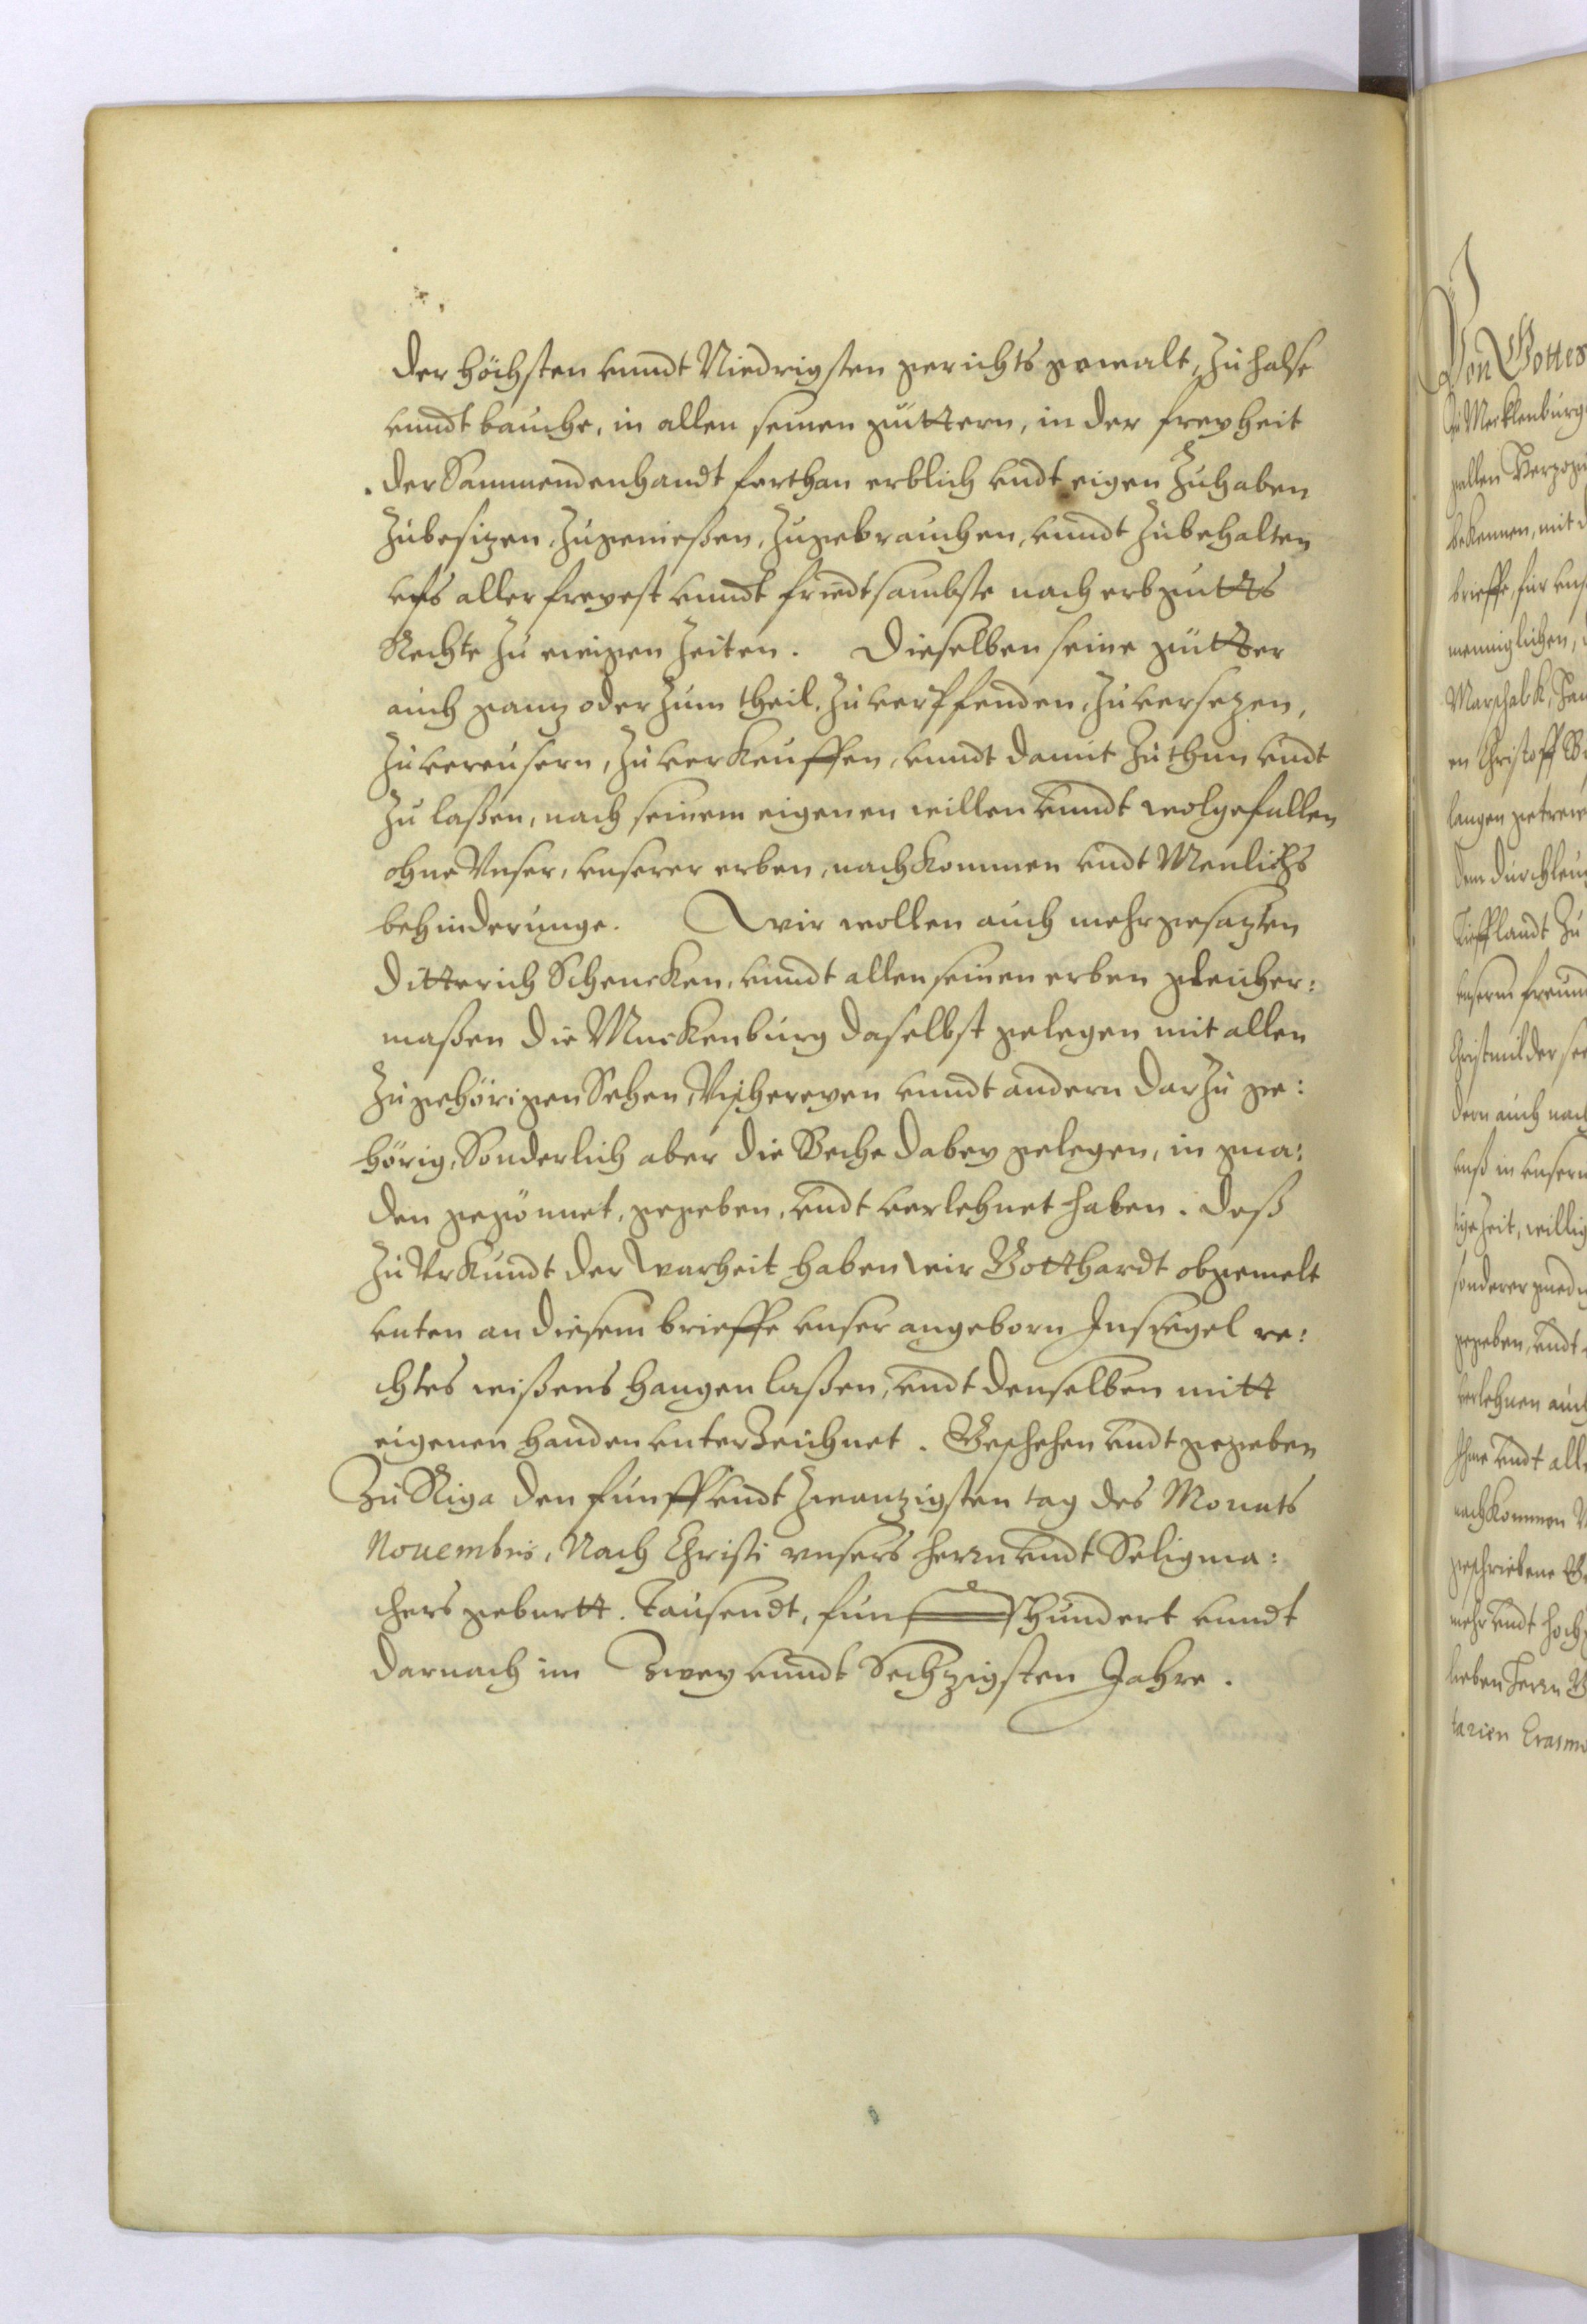 der höchsten vnndt Niedrigsten gerichts gewalt, Zu halse
vnndt bauche, in allen seinen güttern, in der freyheit
der Sammendenhandt forthan erblich vndt eigen Zuhaben
Zubesizen, Zugenießen, Zugebrauchen, vnndt Zubehalten
vfs aller freyest vnndt friedtsambste nach erbgutts
Rechte Zu ewigen Zeiten. Dieselben seine gütter
auch ganz oder Zum theil, Zu verpfenden, Zu versezen,
Zu vereusern, Zu verkeuffen, vnndt damit Zuthun vndt
Zu laßen, nach seinem eigenen willen vnndt wolgefallen
ohne Vnser, vnserer erben, nachkommen vndt Menlichs
behinderunge. Wir wollen auch mehrgesagten
Ditterich Schencken, vnndt allen seinen erben gleicher:
maßen die Muckenburg daselbst gelegen mit allen
Zugehörigen Sehen, Vischereyen vnndt andern darzu ge:
hörig, Sonderlich aber die Beche dabey gelegen, in gna:
den gegönnet, gegeben, vndt verlehnet haben. Deß
Zu Vrkundt der Warheit haben Wir Gotthardt obgemelt
vnten an diesem brieffe vnser angeborn Insiegel re:
chtes wißens hangen laßen, vndt denselben mitt
eigenen handen vnterzeichnet. Geschehen vndt gegeben
Zu Riga den funff vndt zwanzigsten tag des Monats
Nouembris, Nach Christi vnsers herrn vndt Seligma:
chers geburtt. Tausendt, funfhundert vnndt
darnach im Zwey vnndt Sechzigsten Jahre.
Von Gottes
Zu Mecklenburg
bekennen, mit
brieffe, für
menniglichen,
Marschalck,
en Christoff
langen getrew
Liefflandt Zu
dern auch nach
vnß in vnsern
Zeit, willig
gegeben, vndt
verlehnen auch
Ihme vndt alle
nachkommen
geschriebene
mehr vndt hoch
lieben Herrn
tarien Erasmo